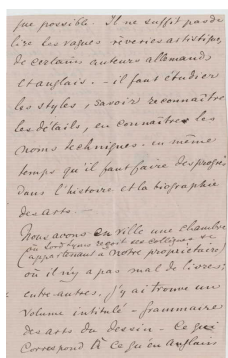 que possible. Il ne suffit pas de
lire les vagues rêveries artistiques
de certains auteurs allemands
et anglais. - il faut étudier
les styles, savoir reconnaître
les détails, en connaître les
noms techniques - en même
temps qu'il faut faire des progrès
dans l'histoire et la biographie
des arts. —
Nous avons en ville une chambre
(où reçoit ses collègues et
appartenant à notre propriétaire)
où il n'y a pas mal de livres;
entre-autres, j'y ai trouvé un
volume intitulé - Grammaire
des arts du dessin - Ce qui
correspond à ce qu'en Anglais